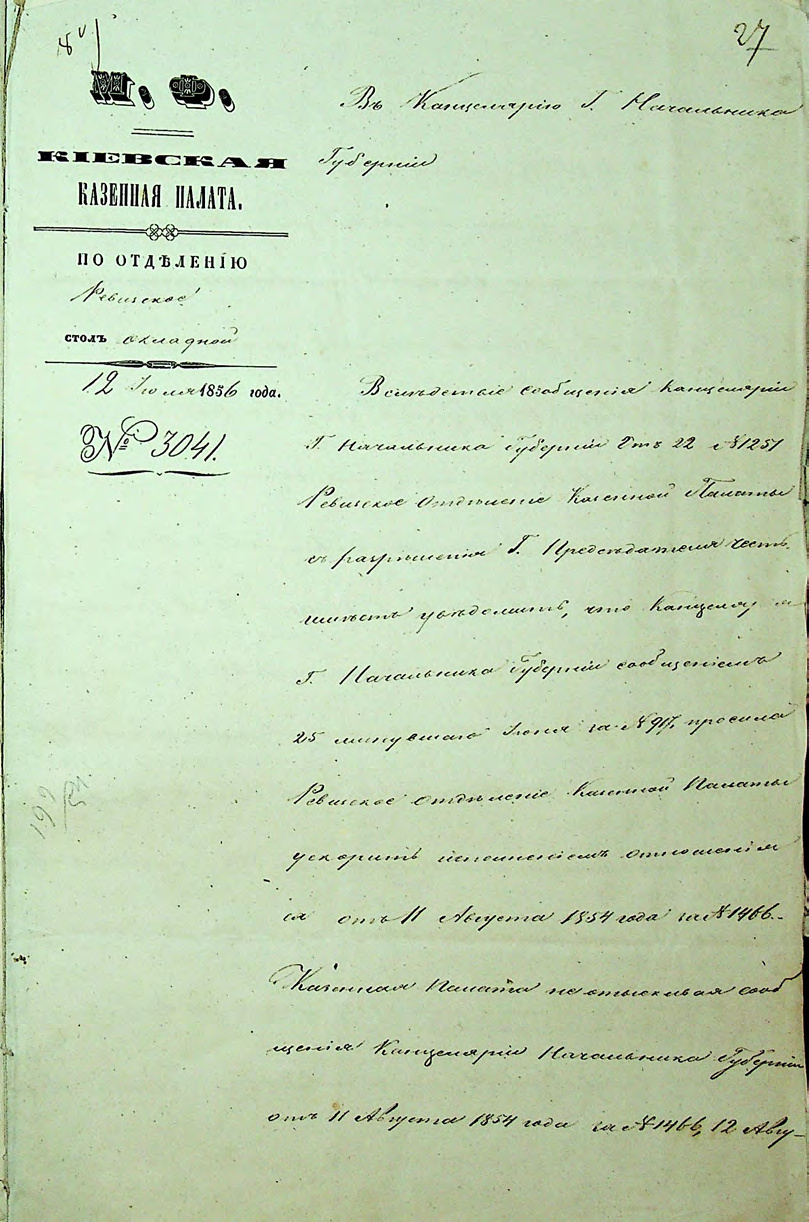 27
М. Ф.
КІЕВСКАЯ
КАЗЕННАЯ ПАЛАТА.
ПО ОТДѢЛЕНІЮ
Ревизское
СТОЛЪ окладной
12 Іюля 1856 года.
№ 3041.
Въ Канцелярію Г. Начальника
Губерніи
Вслѣдствіе сообщенія Канцеляріи
Г. Начальника Губерніи отъ 22 № 1251
Ревизское Отдѣленіе Казенной Палаты
съ разрѣшенія Г. Предсѣдателя честь
имѣетъ увѣдомить, что Канцелярія
Г. Начальника Губерніи сообщеніемъ
25 минувшаго Іюня за № 917, просила
Ревизское Отдѣленіе Казенной Палаты
ускорить исполненіемъ отношенія
ея отъ 11 Августа 1854 года за № 1466.
Казенная Палата не отыскивая сооб
щенія Канцеляріи Начальника Губерніи
отъ 11 Августа 1854 года за № 1466, 12 Авгу-